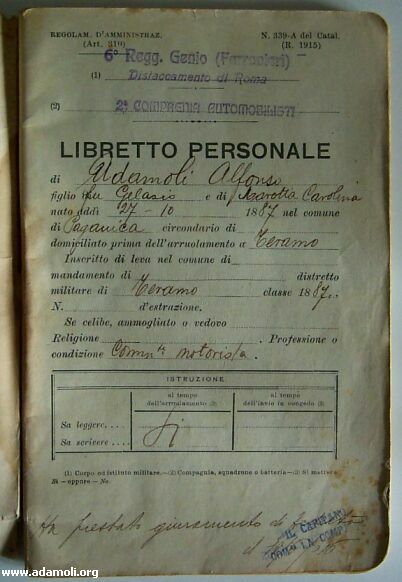 REGOLAM. D'AMMINISTRAZ. N. 339-A del Catal.
(Art. 310) (R. 1915)
6° Regg. Genio (Ferrovieri)
(1) Distaccamento di Roma
(2) 2ª COMPAGNIA AUTOMOBILISTI
LIBRETTO PERSONALE
di Adamoli Alfonso
figlio di Gelasio e di Carolina
nato addì 27-10 1887 nel comune
di Paganica circondario di
domiciliato prima dell'arruolamento a Teramo
Inscritto di leva nel comune di
mandamento di distretto
militare di Teramo classe 1887.
N. d'estrazione.
Se celibe, ammogliato o vedovo
Religione Professione o
condizione Comm.te motorista.
ISTRUZIONE
al tempo dell'arruolamento (3) al tempo dell'invio in congedo (3)
Sa leggere.... Si
Sa scrivere....
(1) Corpo od istituto militare.—(2) Compagnia, squadrone o batteria—(3) Si mettere
Si — oppure — No.
Ha prestato giuramento di
il
IL CAPITANO
COM.TE LA COMP.
www.adamoli.org